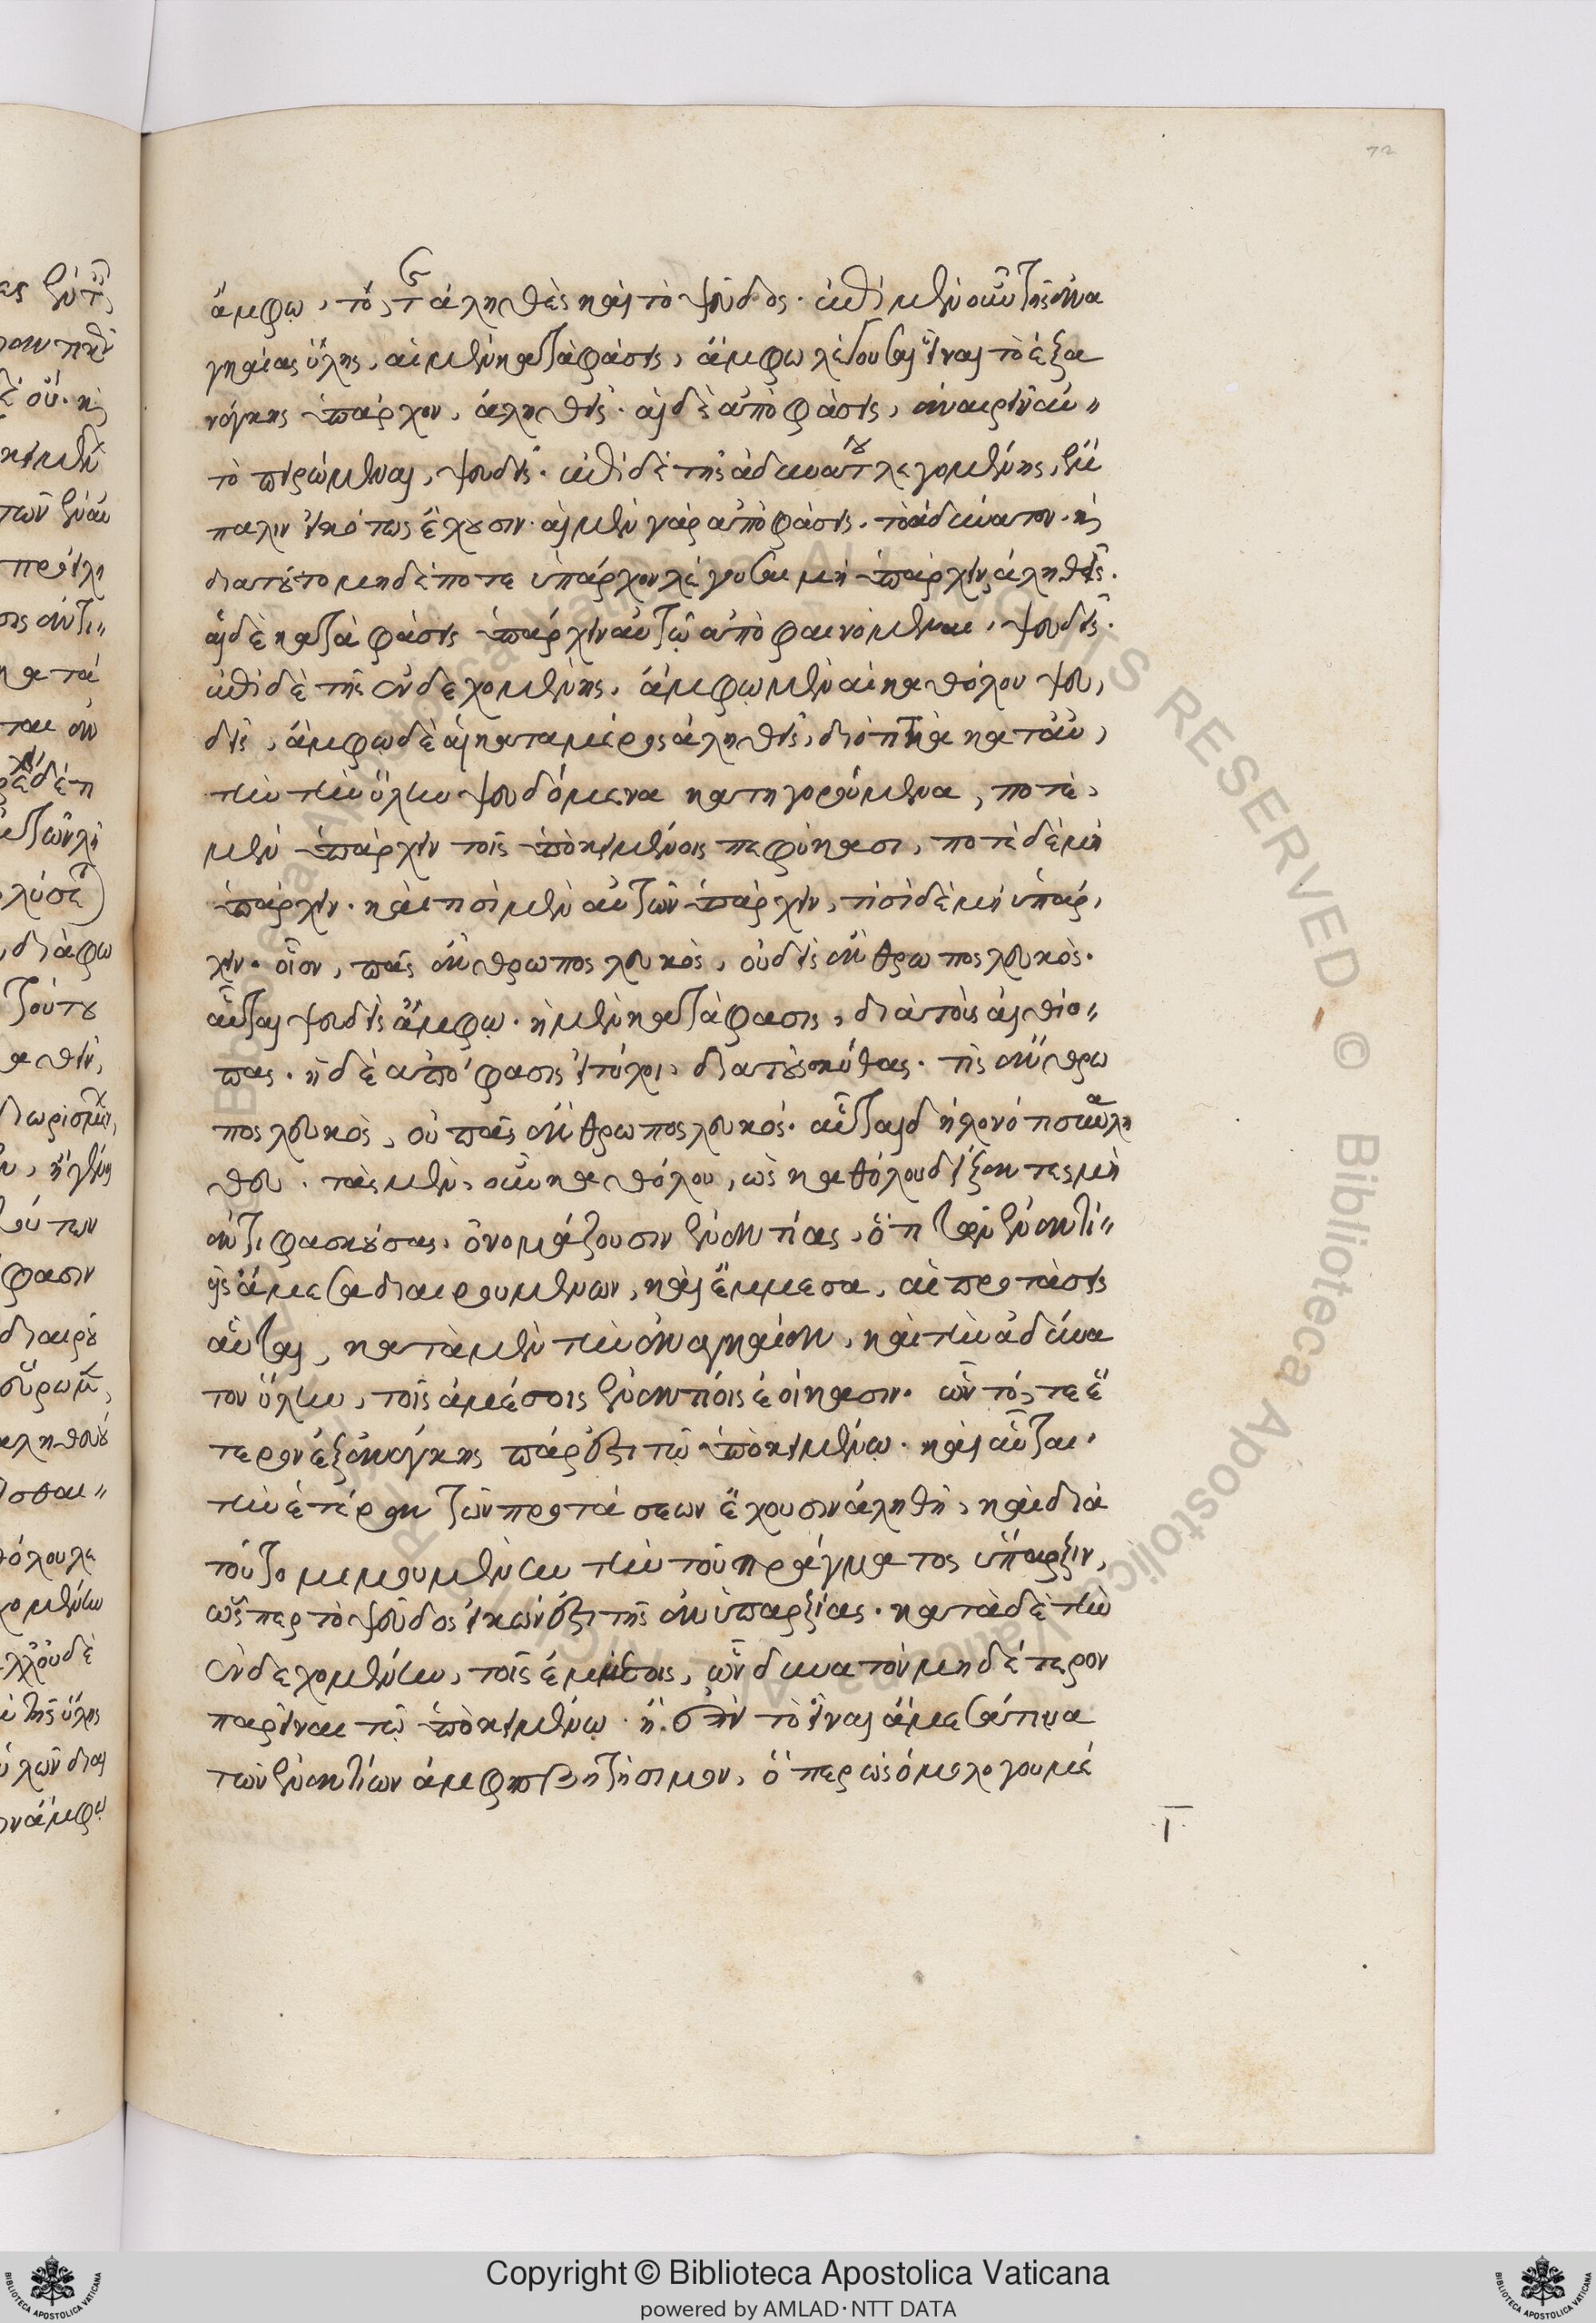 72
ἄμφω, τό, τ ἀληθὲς καὶ τὸ ψεῦδος. ἐπὶ μὲν οὖν τῆς ἀνα
γκαίας ὕλης, αἱ μὲν καταφάσεις, ἄμφω λέγουσαι εἶναι τὸ ἐξ α
νάγκης ὑπάρχον, ἀληθεῖς. αἱ δὲ ἀποφάσεις, ἀναιρεῖν αὐ"
τὸ πειρώμεναι, ψευδεῖς. ἐπὶ δὲ τῆς ἀδυνάτου λεγομένης, ἔμ
παλιν εἰκότως ἔχουσιν. αἱ μὲν γὰρ ἀποφάσεις. τὸ ἀδύνατον. καὶ
διατοῦτο μηδέποτε ὑπάρχον λέγουσαι μὴ ὑπάρχειν, ἀληθεῖς.
αἱ δὲ καταφάσεις ὑπάρχειν αὐτῷ ἀποφαινόμεναι, ψευδεῖς.
ἐπὶ δὲ τῆς ἐνδεχομένης, ἄμφω μὲν αἱ καθόλου ψευ,
δεῖς, ἄμφω δὲ αἱ κατα μέρος ἀληθεῖς, διότι τὰ κατ αὐ,
τὴν τὴν ὕλην ψευδόμενα κατηγορούμενα, ποτὲ,
μὲν ὑπάρχειν τοῖς ὑποκειμένοις πεφύκασι, ποτὲ δὲ μὴ
ὑπάρχειν. καὶ τισὶ μὲν αὐτῶν ὑπάρχειν, τισὶ δὲ μὴ ὑπάρ,
χειν. οἷον, πᾶς ἄνθρωπος λευκὸς, οὐδεὶς ἄνθρωπος λευκὸς.
αὗται ψευδεῖς ἄμφω. ἡ μὲν κατάφασις, διὰ τοὺς αἰθίο"
πας. ἡ δὲ ἀπόφασις εἰ τύχοι, διὰ τοὺς σκύθας. τὶς ἄνθρω
πος λευκὸς, οὐ πᾶς ἄνθρωπος λευκός. αὗται δῆλον ὅτι συναλη
θευ. τὰς μὲν, οὖν καθόλου, ὡς καθόλου δείξαντες μὴ
ἀντιφασκούσας, ὀνομάζουσιν ἐναντίας, ὅτι τῶν ἐναντί"
εἰς ἄμεσα διαιρουμένων, καὶ ἔμμεσα, αἱ προτάσεις
αὗται, κατὰ μὲν τὴν ἀναγκαίαν, καὶ τὴν ἀδύνα
τον ὕλην, τοῖς ἀμέσοις ἐναντίοις ἐοίκασιν. ὧν τό, τε ἕ
τερον ἐξ ἀνάγκης πάρεστι τῷ ὑποκειμένῳ. καὶ αὗται,
τὴν ἑτέραν τῶν προτάσεων ἔχουσιν ἀληθῆ, καὶ διὰ
τοῦτο μιμουμένην τὴν τοῦ πράγματος ὕπαρξιν,
ὥσπερ τὸ ψεῦδος εἰκών ἐστι τῆς ἀνυπαρξίας. κατὰ δὲ τὴν
ἐνδεχομένην, τοῖς ἐμμέσοις, ὧν δυνατὸν μηδέτερον
παρεῖναι τῷ ὑποκειμένῳ. ἢ τὸ εἶναι ἄμεσά τινα
τῶν ἐναντίων ἀμφισβητήσιμον, ὅπερ ὡς ὁμολογουμέ
Copyright © Biblioteca Apostolica Vaticana
powered by AMLAD·NTT DATA